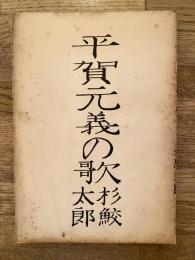 平賀元義の歌
杉鮫太郎